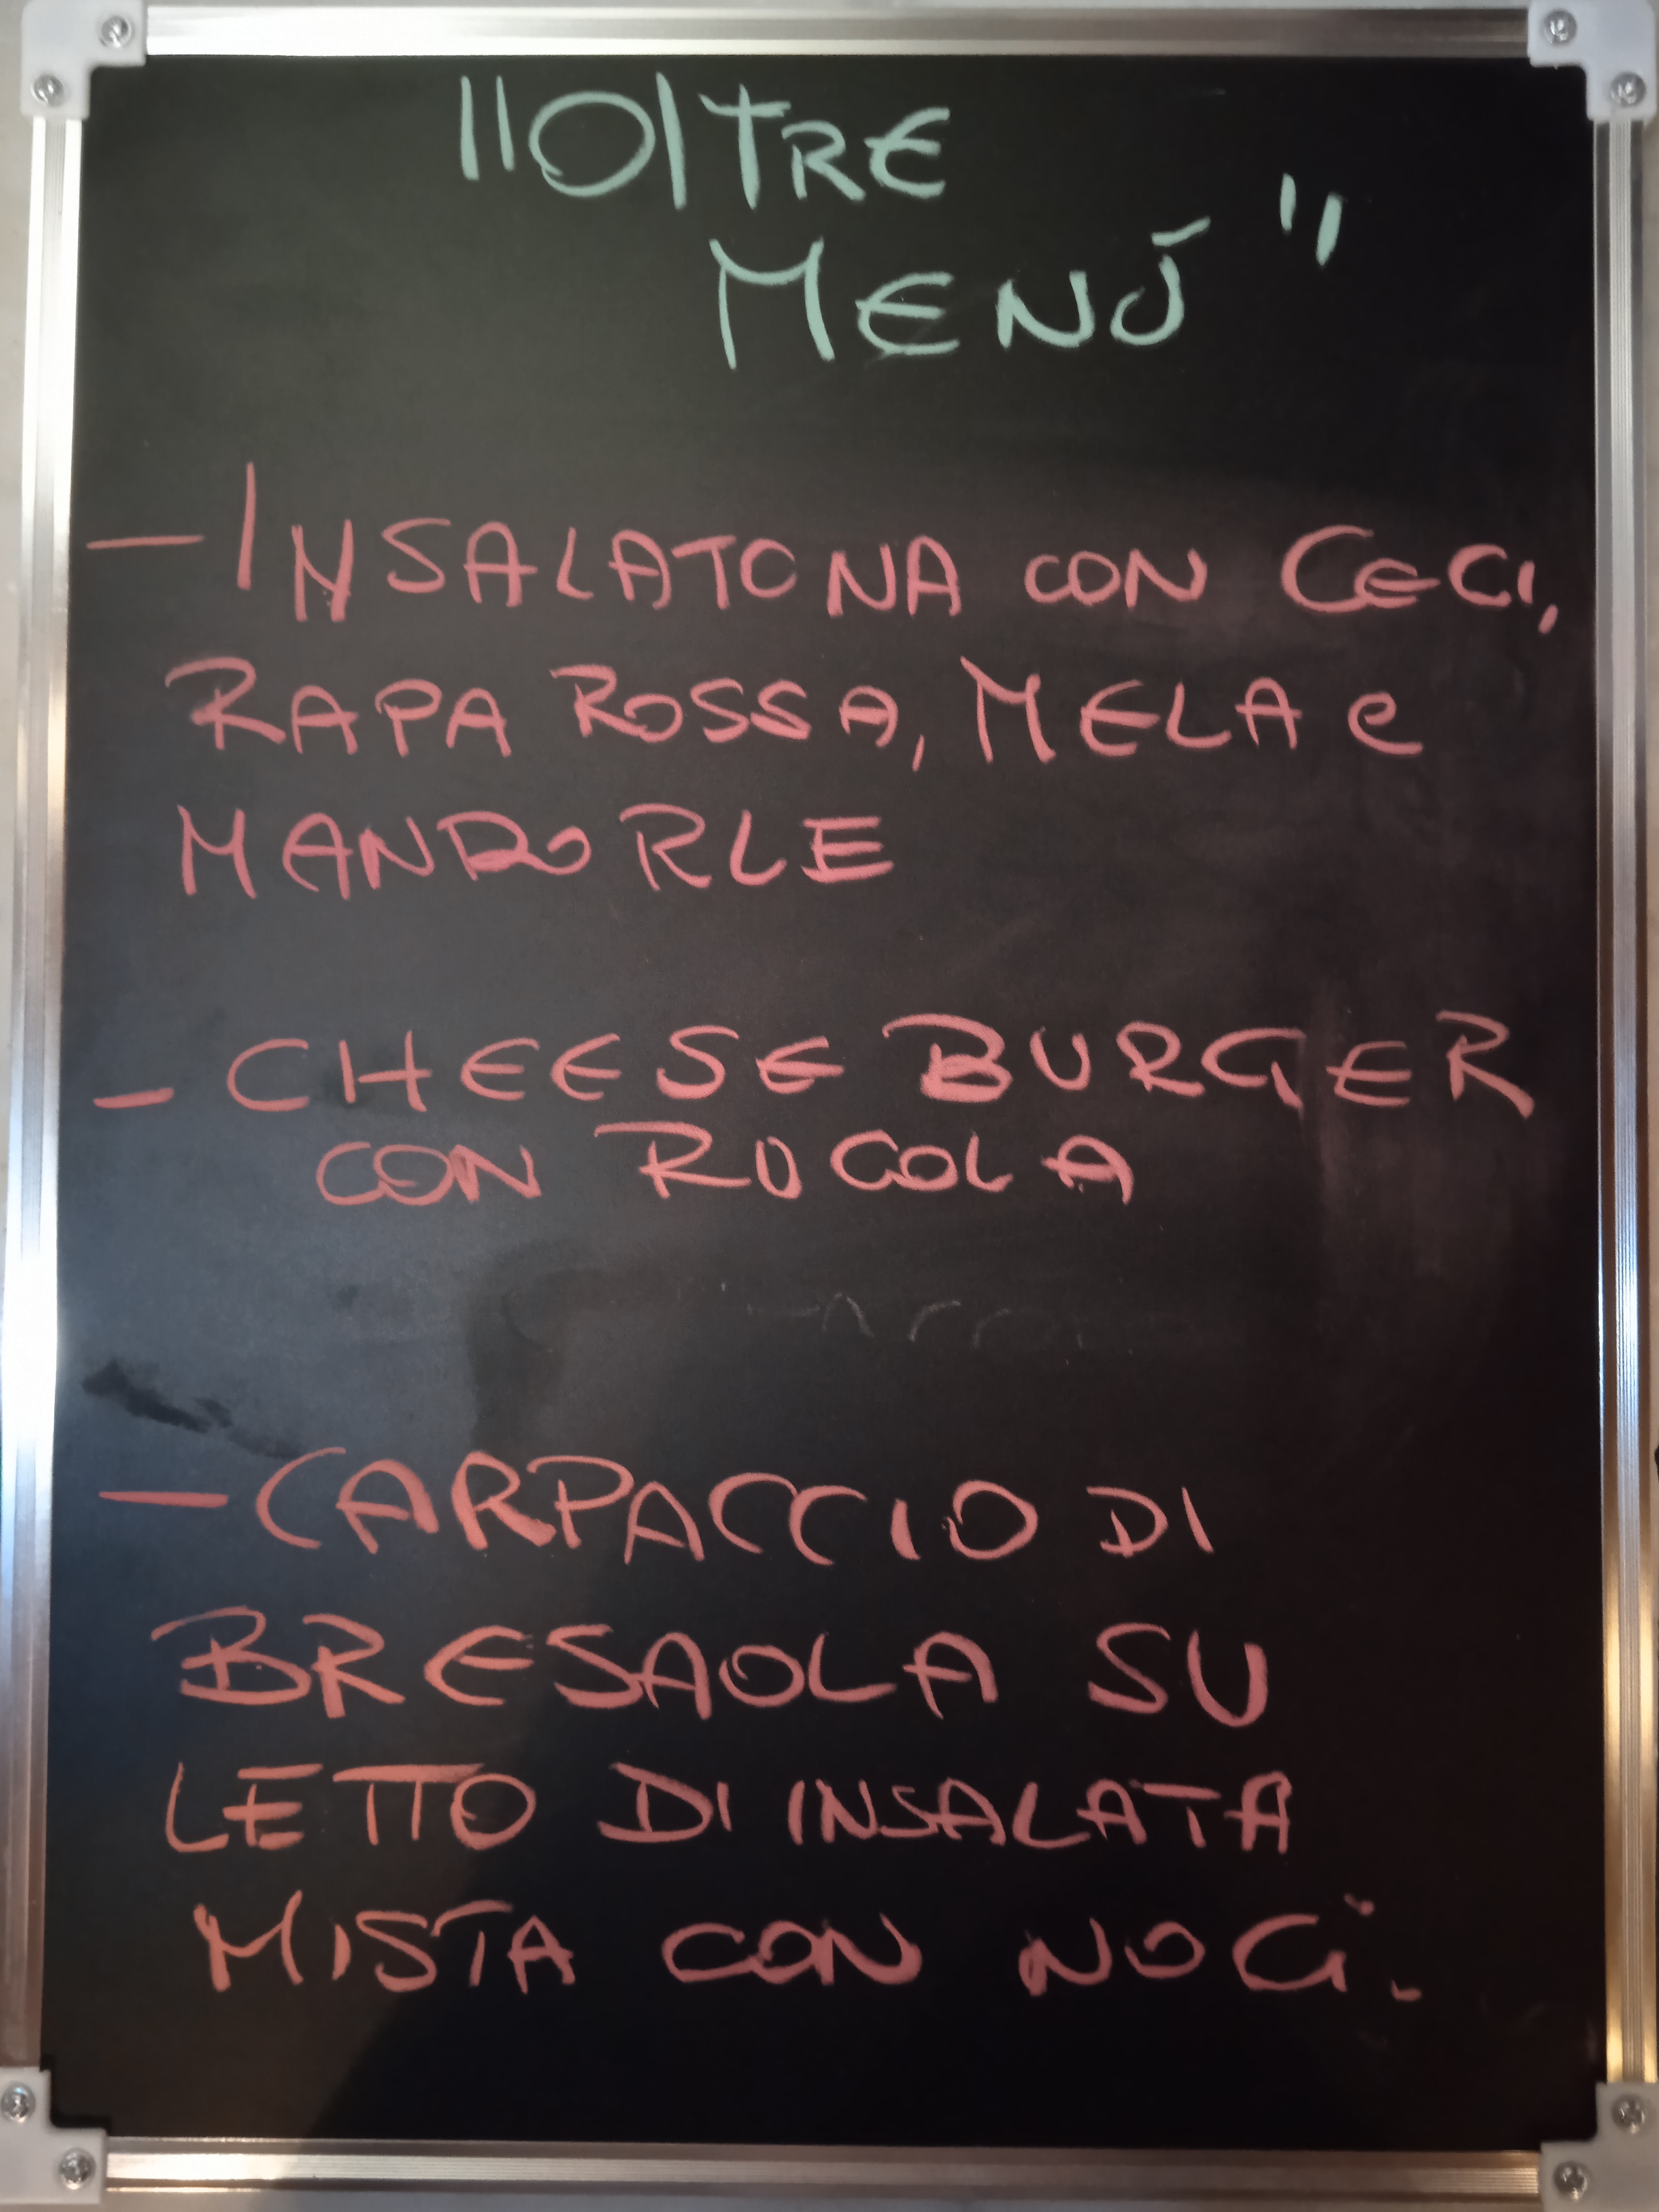 "OlTRE
MENÚ"
- INSALATONA CON CECI,
RAPA ROSSA, MELA e
MANDORLE
- CHEESE BURGER
CON RUCOLA
- CARPACCIO DI
BRESAOLA SU
LETTO DI INSALATA
MISTA CON NOCi.